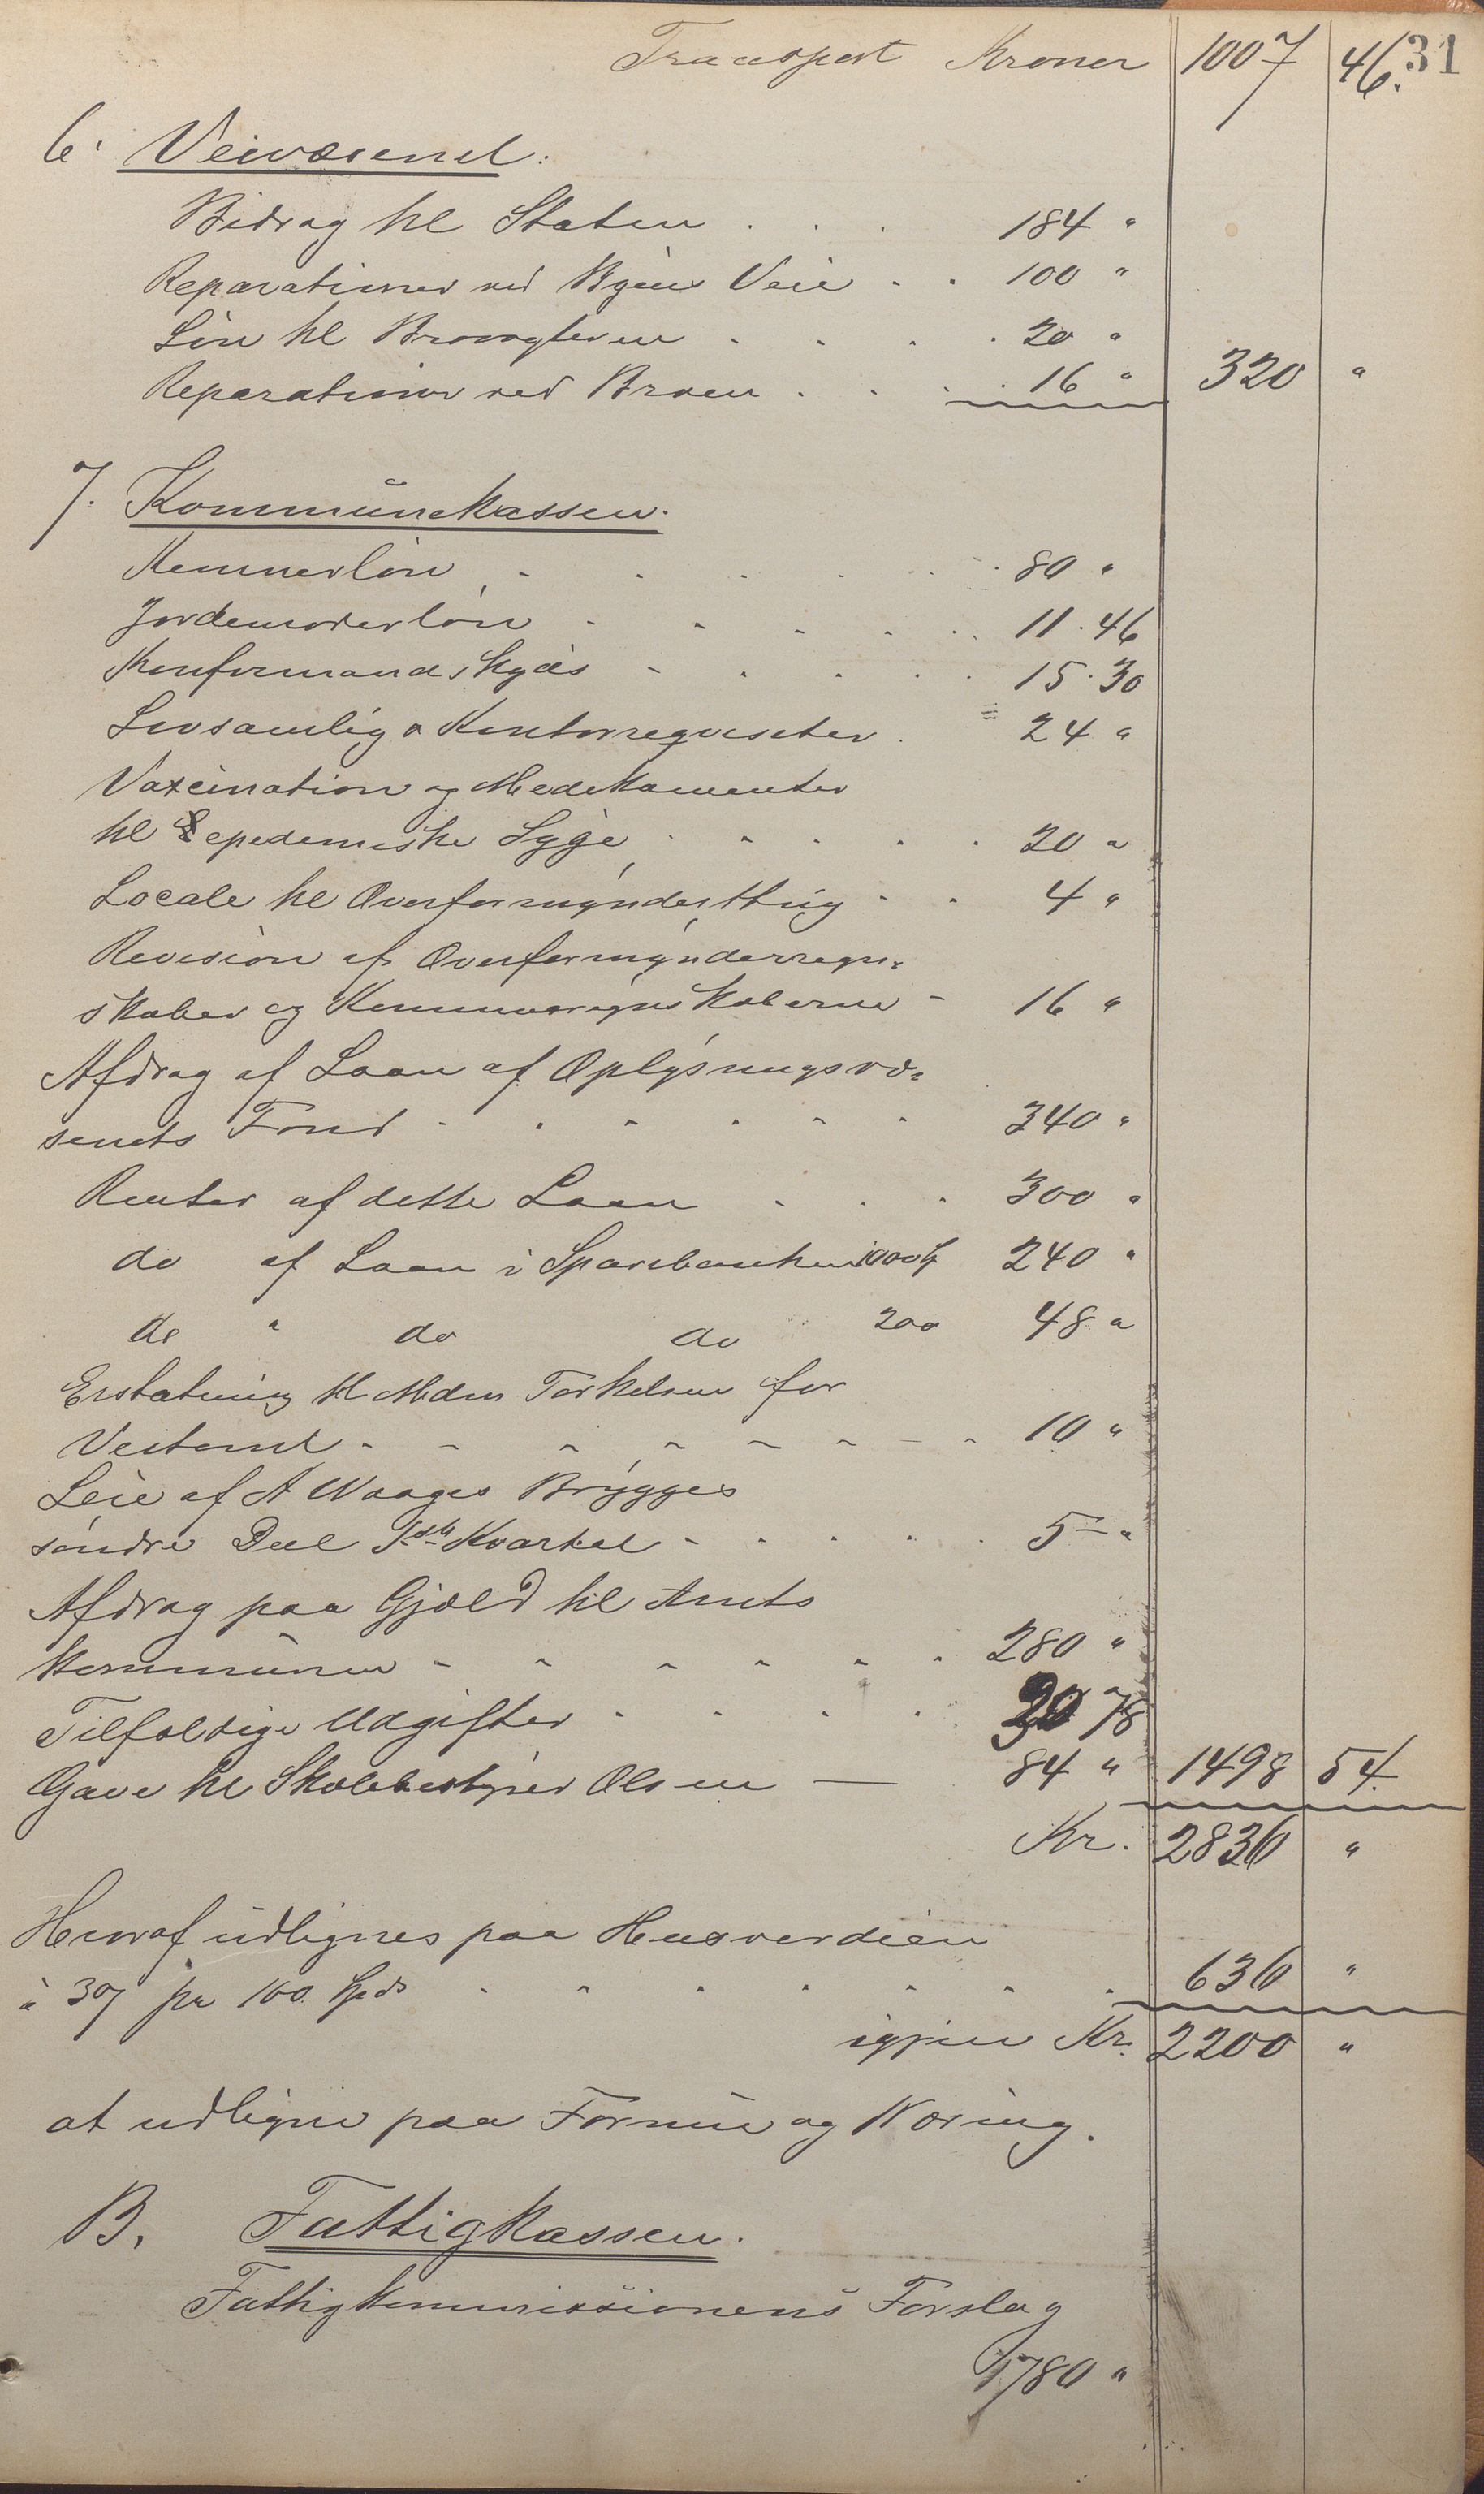 31
Transport Kroner 1007 46.
6. Veivæsenet.
Bidrag til Staten . . . 184 "
Reparationer ved Byens Veie . . 100 "
Løn til Brovagteren . . . . 20 "
Reparationer ved Broen . . . . 16 " 320 "
7. Kommunekassen.
Kemnerløn . . . . . . 80 "
Jordemoderløn . . . . . 11.46
Konfirmandskyds . . . . . 15.30
Lovsamling & Kontorrequisiter . 24 "
Vaxcination og Medikamenter
til epedemiske Syge . . . . . 20 "
Locale til Overformynderthing . . 4 "
Revision af Overformynderregn=
skaber og Kemnerregnskaberne - 16 "
Afdrag af Laan af Oplysningsvæ=
senets Fond . . . . . . 340 "
Renter af dette Laan . . . 300 "
do af Laan i Sparebanken 1000 240 "
do " do do 200 48 "
Erstatning til Mdm Torkelsen for
Veitomt . . . . . . . . 10 "
Leie af A Waages Brygges
søndre Deel 1ste Kvartal . . . . . 5 - "
Afdrag paa Gjæld til Amts
kommunen . . . . . . 280 "
Tilfældige Udgifter . . . . 78
Gave til Skolebestyrer Olsen — 84 " 1498 54.
Kr. 2836 "
Heraf udlignes paa Husverdien
à 37 pr 100 Spds . . . . . . . 636 "
igjen Kr. 2200 "
at udligne paa Formue og Næring.
B. Fattigkassen.
Fattigkommissionens Forslag
1780 "